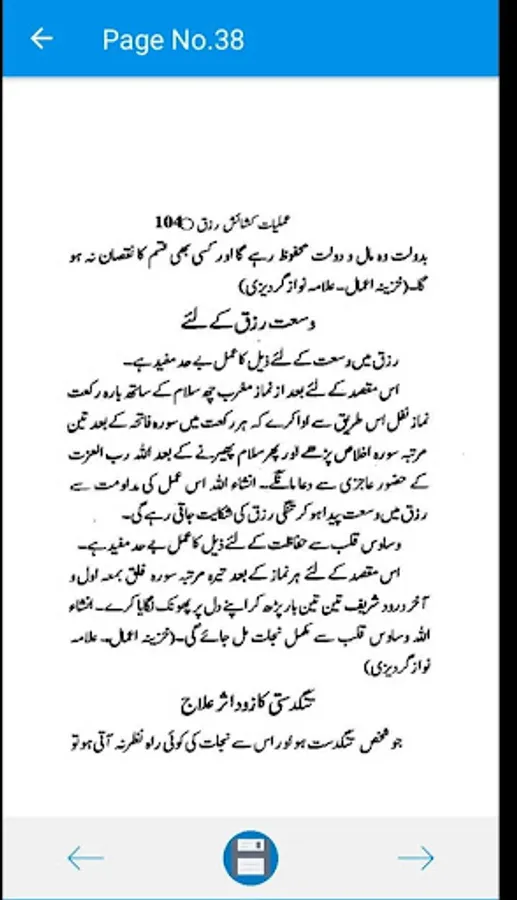 Page No.38
عملیات کشائش رزق ○ 104
بدولت وہ مال و دولت محفوظ رہے گا اور کسی بھی قسم کا نقصان نہ ہو
گا۔ (خزینہ اعمال۔ علامہ نواز گردیزی)
وسعت رزق کے لئے
رزق میں وسعت کے لئے ذیل کا عمل بے حد مفید ہے۔
اس مقصد کے لئے بعد از نماز مغرب چھ سلام کے ساتھ بارہ رکعت
نماز نفل اس طریق سے ادا کرے کہ ہر رکعت میں سورہ فاتحہ کے بعد تین
مرتبہ سورہ اخلاص پڑھے اور پھر سلام پھیرنے کے بعد اللہ رب العزت
کے حضور عاجزی سے دعا مانگے۔ انشاء اللہ اس عمل کی مداومت سے
رزق میں وسعت پیدا ہو کر تنگی رزق کی شکایت جاتی رہے گی۔
وساوس قلب سے حفاظت کے لئے ذیل کا عمل بے حد مفید ہے۔
اس مقصد کے لئے ہر نماز کے بعد تیرہ مرتبہ سورہ فلق بمعہ اول و
آخر درود شریف تین تین بار پڑھ کر اپنے دل پر پھونک لگایا کرے۔ انشاء
اللہ وساوس قلب سے مکمل نجات مل جائے گی۔ (خزینہ اعمال۔ علامہ
نواز گردیزی)
تنگدستی کا زود اثر علاج
جو شخص تنگدست ہو اور اس سے نجات کی کوئی راہ نظر نہ آتی ہو تو